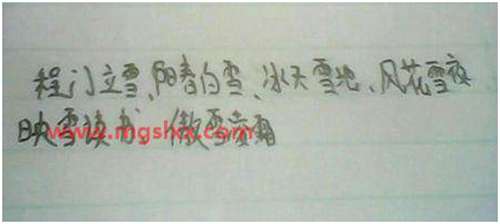 程门立雪、阳春白雪、冰天雪地、风花雪夜
映雪读书、傲雪凌霜
www.mgshxx.com